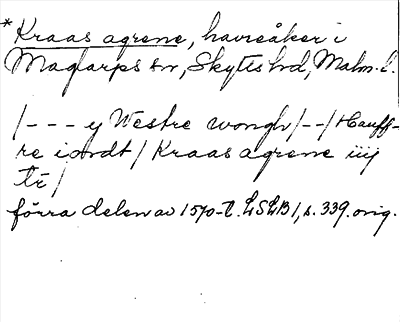 * Kraas agrene, havreåker i
Maglarps sn, Skytts hd, Malm. l.
/--- y Westre wongh/--/Hauff-
re iordt/Kraas agrene iiij
tr/
förra delen av 1570-t. LSLB 1, s. 339. orig.